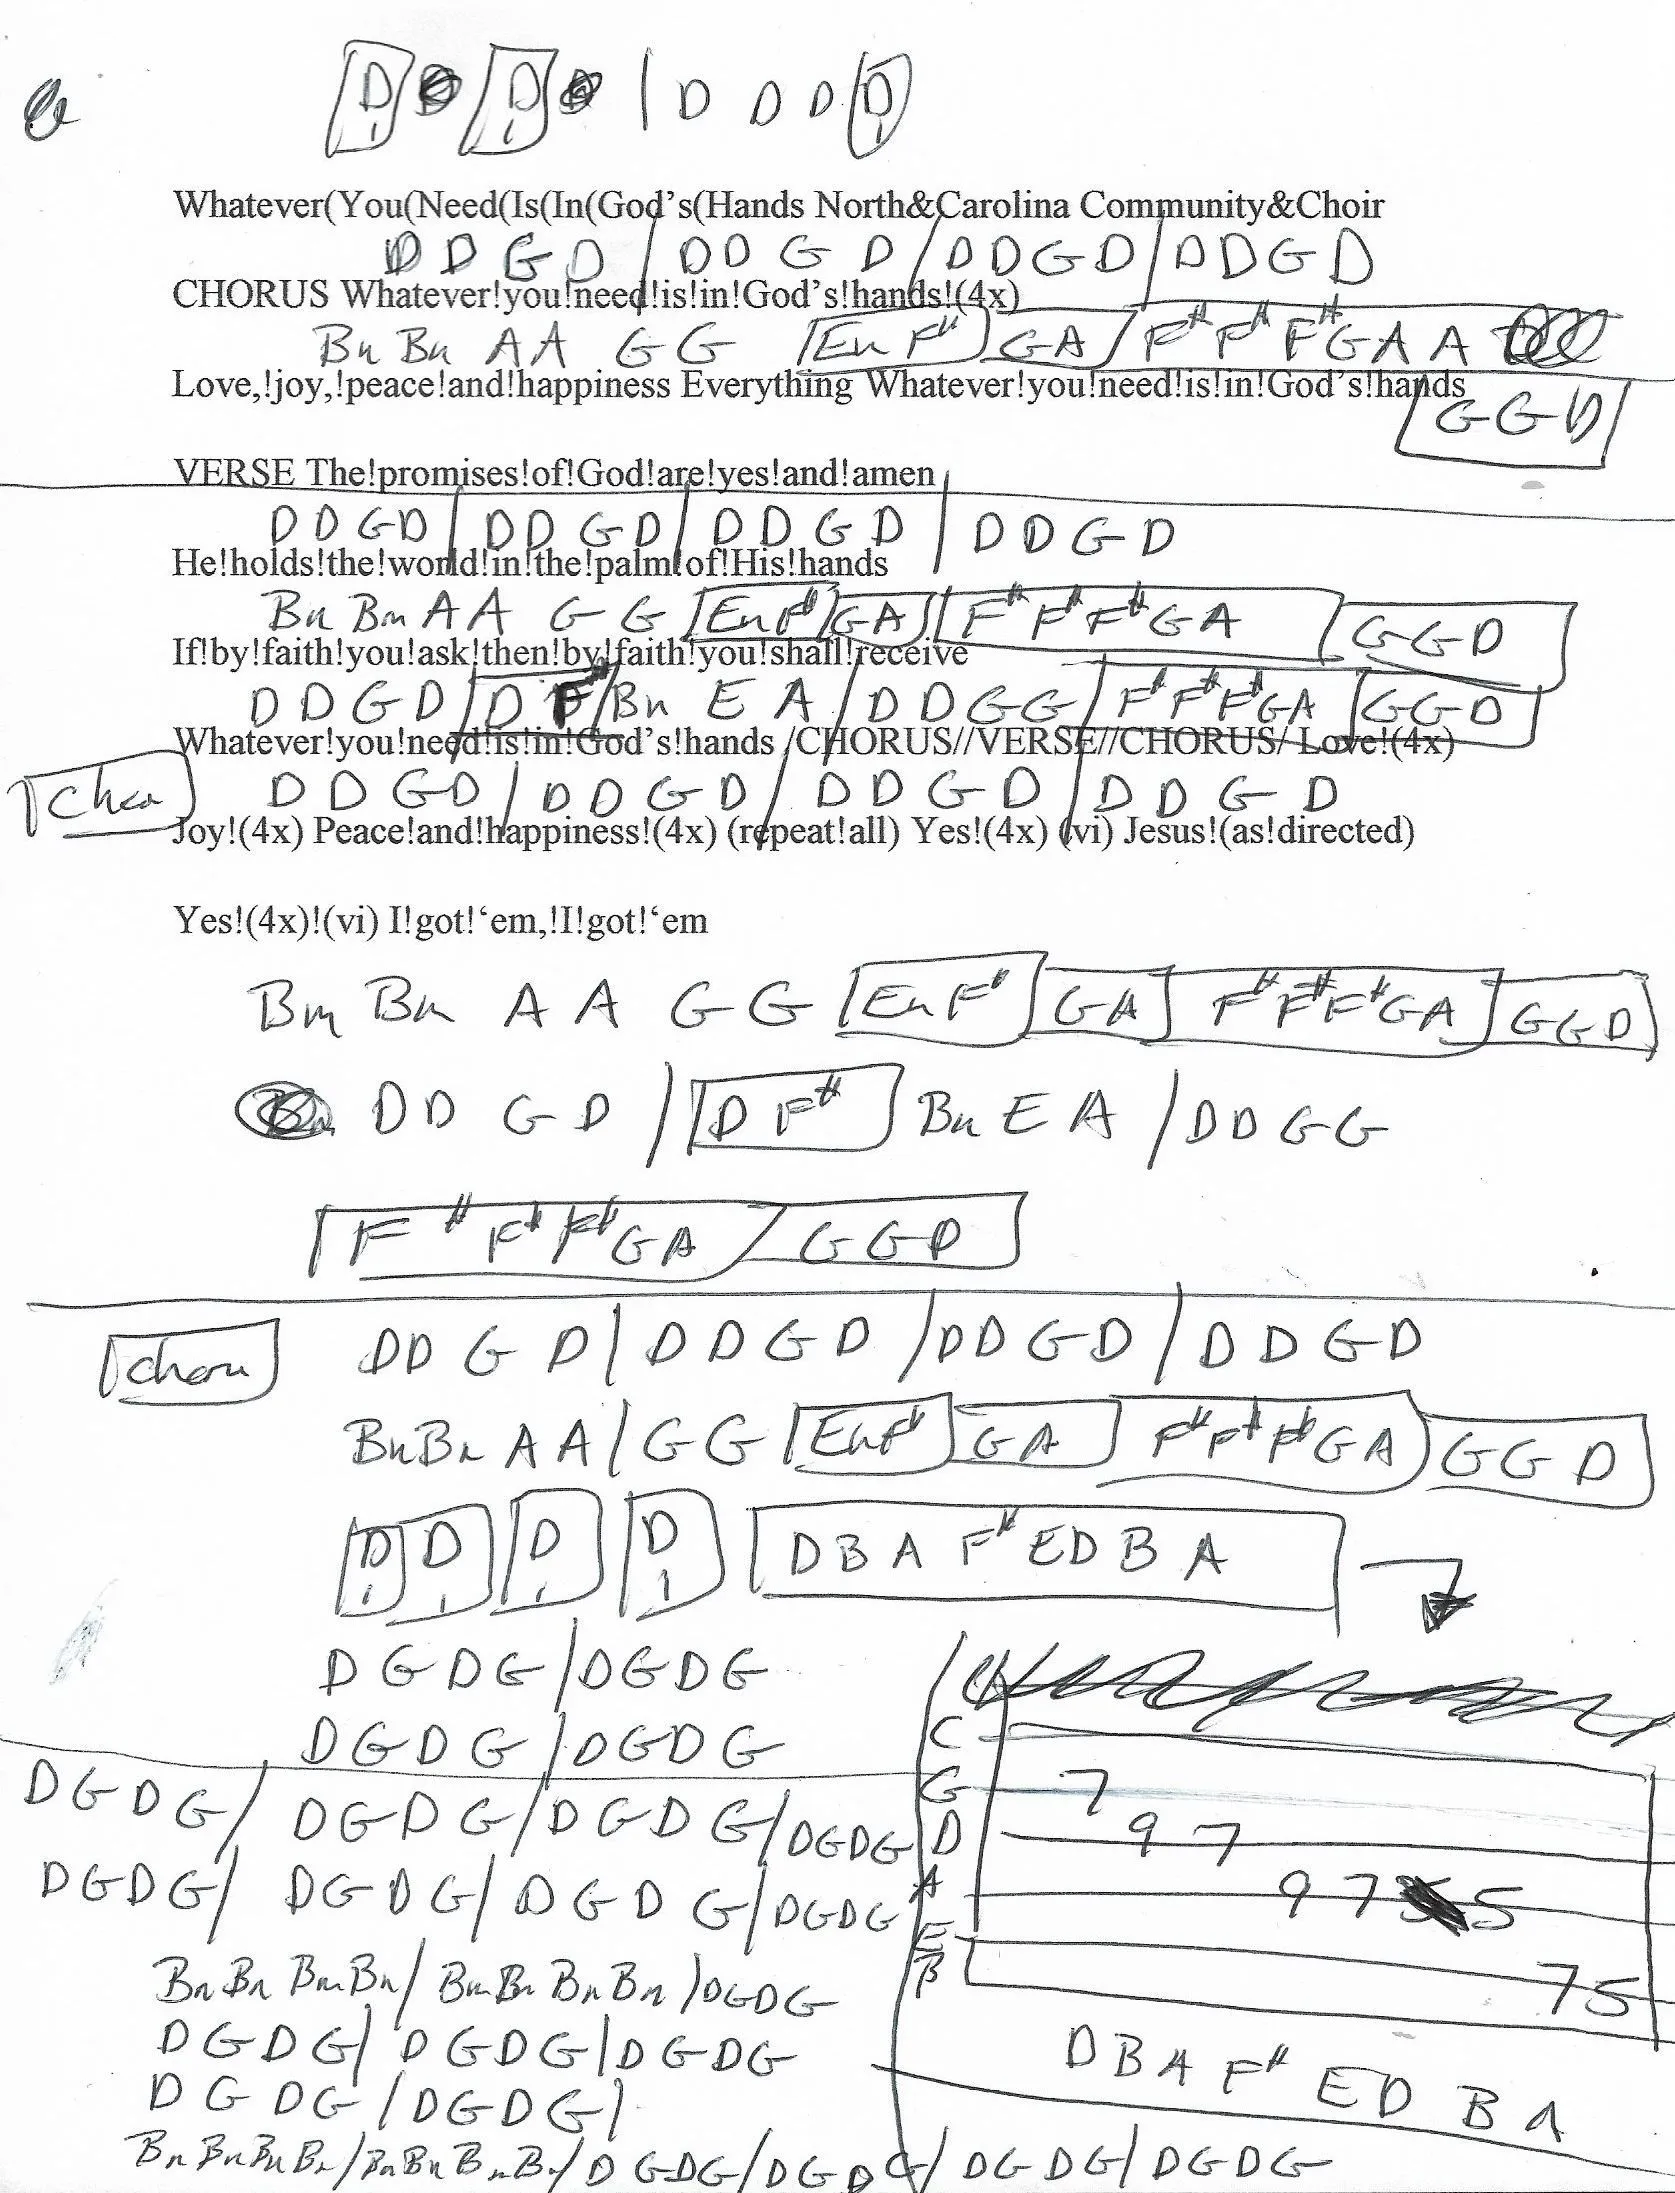 D D | D D D D
Whatever(You(Need(Is(In(God's(Hands North&Carolina Community&Choir
D D G D / D D G D / D D G D / D D G D
CHORUS Whatever!you!need!is!in!God's!hands!(4x)
Bm Bm A A G G Em F# G A F# F# F# G A A
Love,!joy,!peace!and!happiness Everything Whatever!you!need!is!in!God's!hands
G G D
VERSE The!promises!of!God!are!yes!and!amen
D D G D / D D G D / D D G D / D D G D
He!holds!the!world!in!the!palm!of!His!hands
Bm Bm A A G G Em F# G A F# F# F# G A G G D
If!by!faith!you!ask!then!by!faith!you!shall!receive
D D G D / D F# / Bm E A / D D G G / F# F# F# G A G G D
Whatever!you!need!is!in!God's!hands /CHORUS//VERSE//CHORUS/ Love!(4x)
D D G D / D D G D / D D G D / D D G D
Joy!(4x) Peace!and!happiness!(4x) (repeat!all) Yes!(4x) (vi) Jesus!(as!directed)
Yes!(4x)!(vi) I!got!'em,!I!got!'em
Bm Bm A A G G Em F# G A F# F# F# G A G G D
D D G D / D F# Bm E A / D D G G
F# F# F# G A / G G D
D D G D / D D G D / D D G D / D D G D
Bm Bm A A / G G Em F# G A F# F# F# G A G G D
D D D D D B A F# E D B A
D G D G / D G D G
D G D G / D G D G
D G D G / D G D G / D G D G / D G D G
D G D G / D G D G / D G D G / D G D G
Bm Bm Bm Bm / Bm Bm Bm Bm / D G D G
D G D G / D G D G / D G D G
D G D G / D G D G /
Bm Bm Bm Bm / Bm Bm Bm Bm / D G D G / D G D G / D G D G / D G D G
C
G 7
D 9 7
A 9 7 5
E
B 7 5
D B A F# E D B A